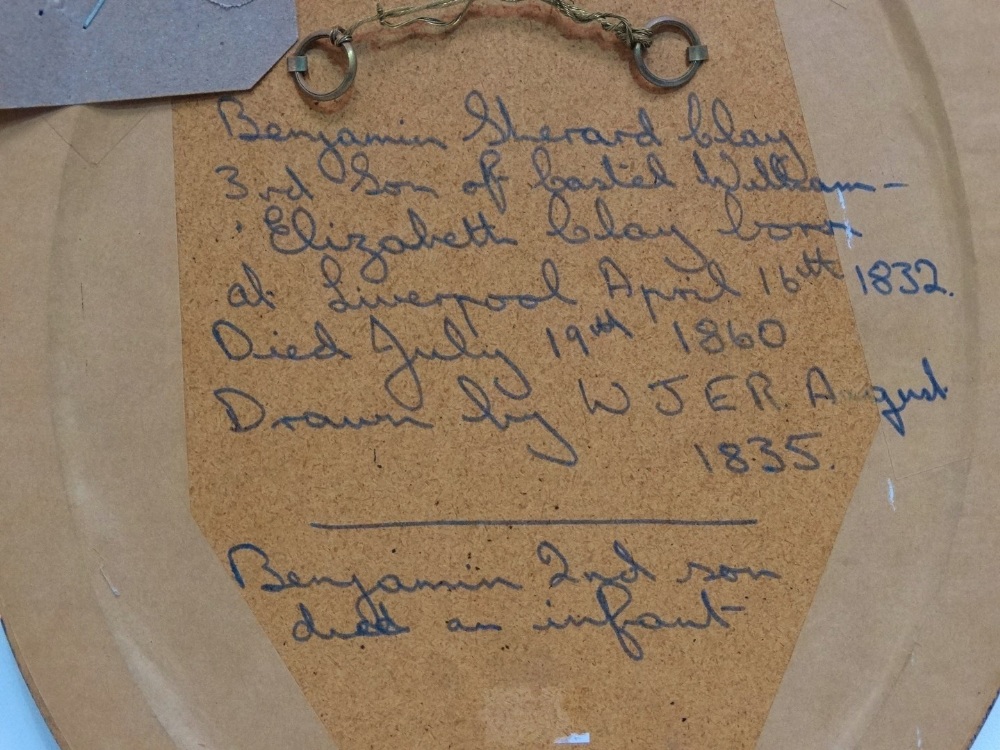 Benjamin Sherard Clay
3rd Son of Castel William -
' Elizabeth Clay born
at Liverpool April 16th 1832.
Died July 19th 1860
Drawn by W J E R. August
1835.
Benjamin 2nd son
died an infant